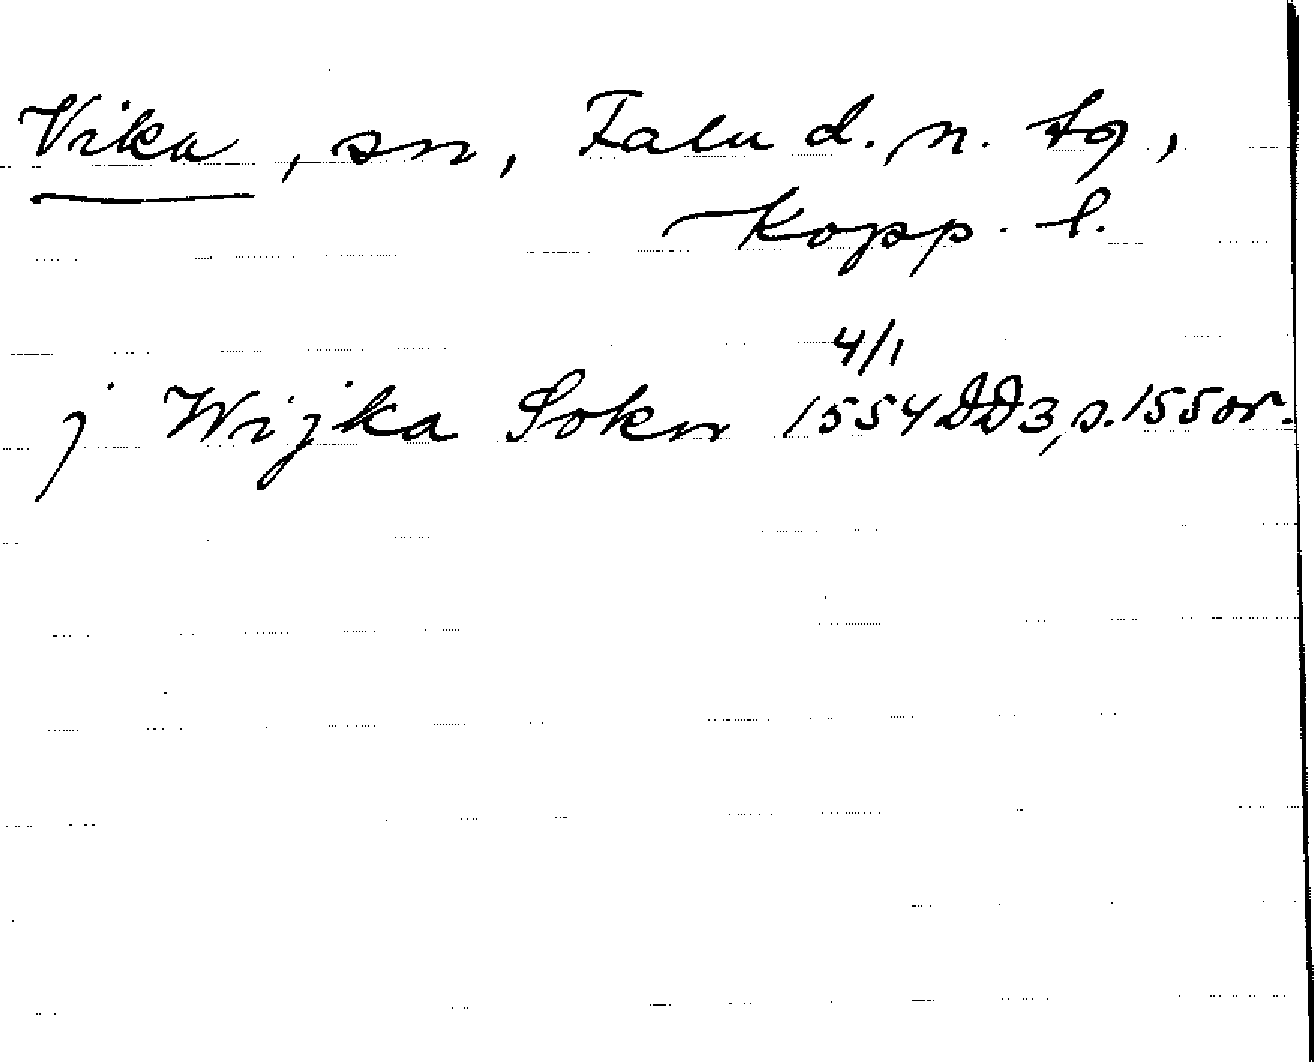 Vika, sn, Falu d. n. tg,
Kopp. l.
4/1
j Wijka Sokn 1554 DD3, s. 155 or.